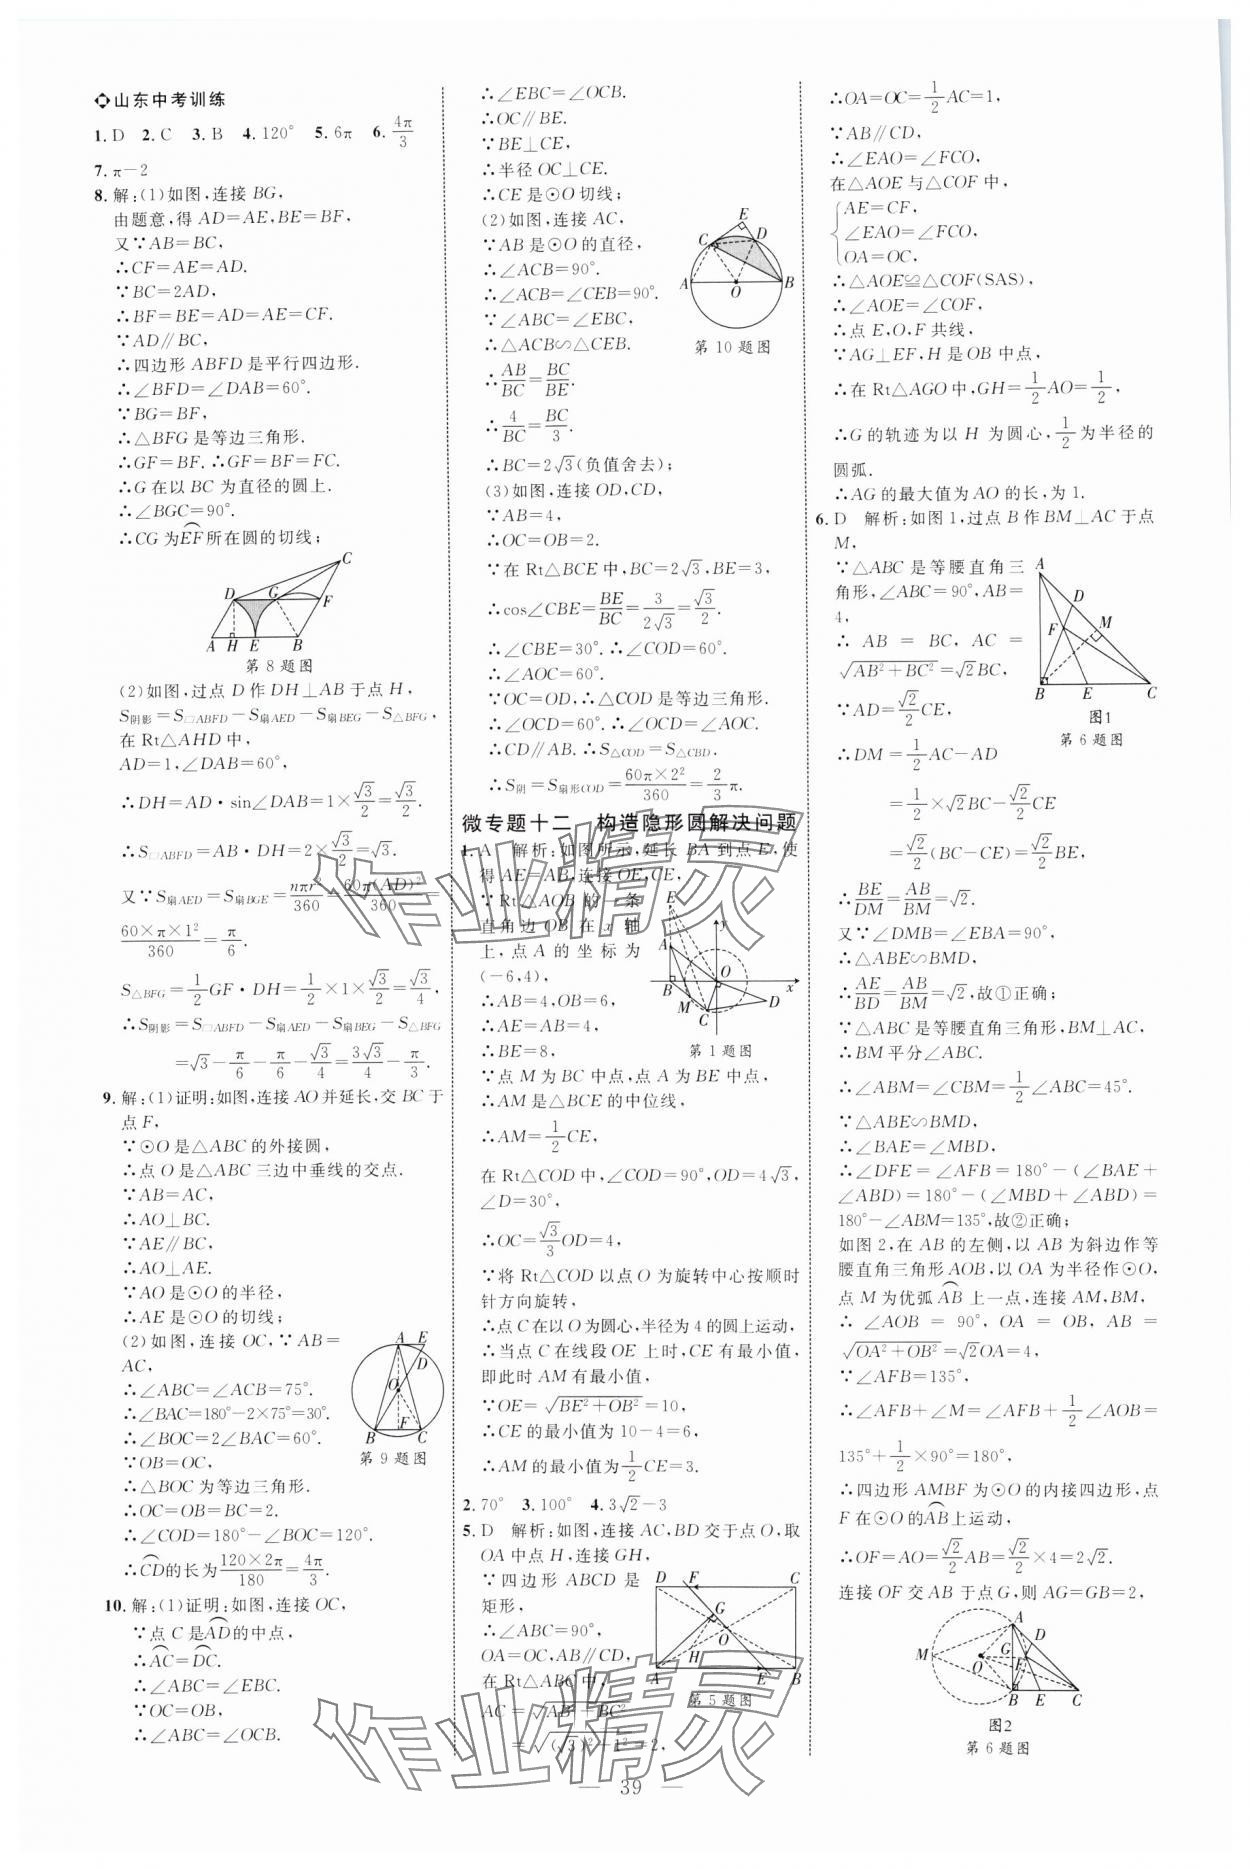 山东中考训练
1. D 2. C 3. B 4. 120° 5. 6π 6. 4π/3
7. π－2
8. 解:(1)如图,连接 BG,
由题意,得 AD＝AE,BE＝BF,
又∵AB＝BC,
∴CF＝AE＝AD.
∵BC＝2AD,
∴BF＝BE＝AD＝AE＝CF.
∵AD∥BC,
∴四边形 ABFD 是平行四边形.
∴∠BFD＝∠DAB＝60°.
∵BG＝BF,
∴△BFG 是等边三角形.
∴GF＝BF. ∴GF＝BF＝FC.
∴G 在以 BC 为直径的圆上.
∴∠BGC＝90°.
∴CG 为EF⌒所在圆的切线;
D G C F A H E B
第 8 题图
(2)如图,过点 D 作 DH⊥AB 于点 H,
S阴影＝S▱ABFD－S扇AED－S扇BEG－S△BFG,
在 Rt△AHD 中,
AD＝1,∠DAB＝60°,
∴DH＝AD·sin∠DAB＝1×√3/2＝√3/2.
∴S▱ABFD＝AB·DH＝2×√3/2＝√3.
又∵S扇AED＝S扇BGE＝nπr²/360＝60π(AD)²/360＝
60×π×1²/360＝π/6.
S△BFG＝1/2GF·DH＝1/2×1×√3/2＝√3/4,
∴S阴影＝S▱ABFD－S扇AED－S扇BEG－S△BFG
＝√3－π/6－π/6－√3/4＝3√3/4－π/3.
9. 解:(1)证明:如图,连接 AO 并延长,交 BC 于
点 F,
∵⊙O 是△ABC 的外接圆,
∴点 O 是△ABC 三边中垂线的交点.
∵AB＝AC,
∴AO⊥BC.
∵AE∥BC,
∴AO⊥AE.
∵AO 是⊙O 的半径,
∴AE 是⊙O 的切线;
(2)如图,连接 OC,∵AB＝
AC,
∴∠ABC＝∠ACB＝75°.
∴∠BAC＝180°－2×75°＝30°.
∴∠BOC＝2∠BAC＝60°.
∵OB＝OC,
∴△BOC 为等边三角形.
∴OC＝OB＝BC＝2.
∴∠COD＝180°－∠BOC＝120°.
∴CD⌒的长为120×2π/180＝4π/3.
A E D O F B C
第 9 题图
10. 解:(1)证明:如图,连接 OC,
∵点 C 是AD⌒的中点,
∴AC⌒＝DC⌒.
∴∠ABC＝∠EBC.
∵OC＝OB,
∴∠ABC＝∠OCB.
∴∠EBC＝∠OCB.
∴OC∥BE.
∵BE⊥CE,
∴半径 OC⊥CE.
∴CE 是⊙O 切线;
(2)如图,连接 AC,
∵AB 是⊙O 的直径,
∴∠ACB＝90°.
∴∠ACB＝∠CEB＝90°.
∵∠ABC＝∠EBC,
∴△ACB∽△CEB.
∴AB/BC＝BC/BE.
∴4/BC＝BC/3.
∴BC＝2√3(负值舍去);
E C D A O B
第 10 题图
(3)如图,连接 OD,CD,
∵AB＝4,
∴OC＝OB＝2.
∵在 Rt△BCE 中,BC＝2√3,BE＝3,
∴cos∠CBE＝BE/BC＝3/2√3＝√3/2.
∴∠CBE＝30°. ∴∠COD＝60°.
∴∠AOC＝60°.
∵OC＝OD,∴△COD 是等边三角形.
∴∠OCD＝60°. ∴∠OCD＝∠AOC.
∴CD∥AB. ∴S△COD＝S△CBD.
∴S阴＝S扇形COD＝60π×2²/360＝2/3π.
微专题十二 构造隐形圆解决问题
1. A 解析:如图所示,延长 BA 到点 E,使
得 AE＝AB,连接 OE,CE,
∵Rt△AOB 的一条
直角边 OB 在 x 轴
上,点 A 的坐标为
(－6,4),
∴AB＝4,OB＝6,
∴AE＝AB＝4,
∴BE＝8,
E y A O B M C D x
第 1 题图
∵点 M 为 BC 中点,点 A 为 BE 中点,
∴AM 是△BCE 的中位线,
∴AM＝1/2CE,
在 Rt△COD 中,∠COD＝90°,OD＝4√3,
∠D＝30°,
∴OC＝√3/3OD＝4,
∵将 Rt△COD 以点 O 为旋转中心按顺时
针方向旋转,
∴点 C 在以 O 为圆心,半径为 4 的圆上运动,
∴当点 C 在线段 OE 上时,CE 有最小值,
即此时 AM 有最小值,
∵OE＝√BE²＋OB²＝10,
∴CE 的最小值为 10－4＝6,
∴AM 的最小值为1/2CE＝3.
2. 70° 3. 100° 4. 3√2－3
5. D 解析:如图,连接 AC,BD 交于点 O,取
OA 中点 H,连接 GH,
∵四边形 ABCD 是
矩形,
∴∠ABC＝90°,
OA＝OC,AB∥CD,
在 Rt△ABC 中,
AC＝√AB²＋BC²
＝√(√3)²＋1²＝2,
D F C G O H A E B
第 5 题图
∴OA＝OC＝1/2AC＝1,
∵AB∥CD,
∴∠EAO＝∠FCO,
在△AOE 与△COF 中,
AE＝CF,
∠EAO＝∠FCO,
OA＝OC,
∴△AOE≌△COF(SAS),
∴∠AOE＝∠COF,
∴点 E,O,F 共线,
∵AG⊥EF,H 是 OB 中点,
∴在 Rt△AGO 中,GH＝1/2AO＝1/2,
∴G 的轨迹为以 H 为圆心,1/2为半径的
圆弧.
∴AG 的最大值为 AO 的长,为 1.
6. D 解析:如图 1,过点 B 作 BM⊥AC 于点
M,
∵△ABC 是等腰直角三
角形,∠ABC＝90°,AB＝
4,
∴AB＝BC,AC＝
√AB²＋BC²＝√2BC,
∵AD＝√2/2CE,
∴DM＝1/2AC－AD
＝1/2×√2BC－√2/2CE
＝√2/2(BC－CE)＝√2/2BE,
A D M F B E C
图1
第 6 题图
∴BE/DM＝AB/BM＝√2.
又∵∠DMB＝∠EBA＝90°,
∴△ABE∽△BMD,
∴AE/BD＝AB/BM＝√2,故①正确;
∵△ABC 是等腰直角三角形,BM⊥AC,
∴BM 平分∠ABC.
∴∠ABM＝∠CBM＝1/2∠ABC＝45°.
∵△ABE∽△BMD,
∴∠BAE＝∠MBD,
∴∠DFE＝∠AFB＝180°－(∠BAE＋
∠ABD)＝180°－(∠MBD＋∠ABD)＝
180°－∠ABM＝135°,故②正确;
如图 2,在 AB 的左侧,以 AB 为斜边作等
腰直角三角形 AOB,以 OA 为半径作⊙O,
点 M 为优弧 AB⌒ 上一点,连接 AM,BM,
∴∠AOB＝90°,OA＝OB,AB＝
√OA²＋OB²＝√2OA＝4,
∵∠AFB＝135°,
∴∠AFB＋∠M＝∠AFB＋1/2∠AOB＝
135°＋1/2×90°＝180°,
∴四边形 AMBF 为⊙O 的内接四边形,点
F 在⊙O 的AB⌒上运动,
∴OF＝AO＝√2/2AB＝√2/2×4＝2√2.
连接 OF 交 AB 于点 G,则 AG＝GB＝2,
A D M O G F B E C
图2
第 6 题图
39
作业精灵
作业精灵